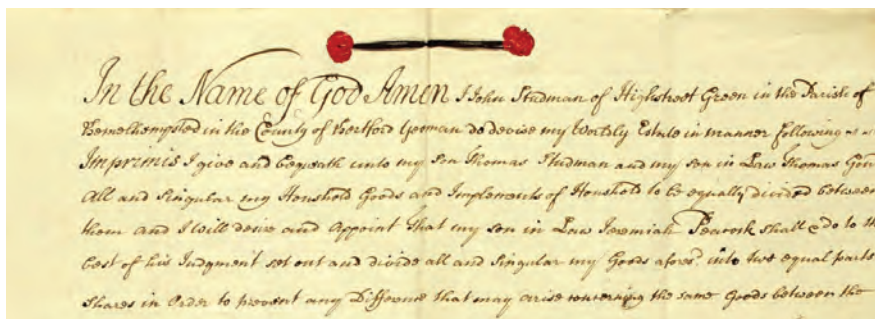 In the Name of God Amen I John Studman of Highstreet Green in the Parish of
Hemelhempsted in the County of Hertford Yeoman do devise my Worldly Estate in manner following
Imprimis I give and bequeath unto my Son Thomas Studman and my son in Law Thomas
All and Singular my Houshold Goods and Implements of Houshold to be equally divided between
them and I Will desire and Appoint That my son in Law Jeremiah Peacock shall & do to th
best of his Judgment set out and divide all and Singular my Goods afores.d into two equal parts
Shares in Order to prevent any Difference that may arise concerning the same Goods between the